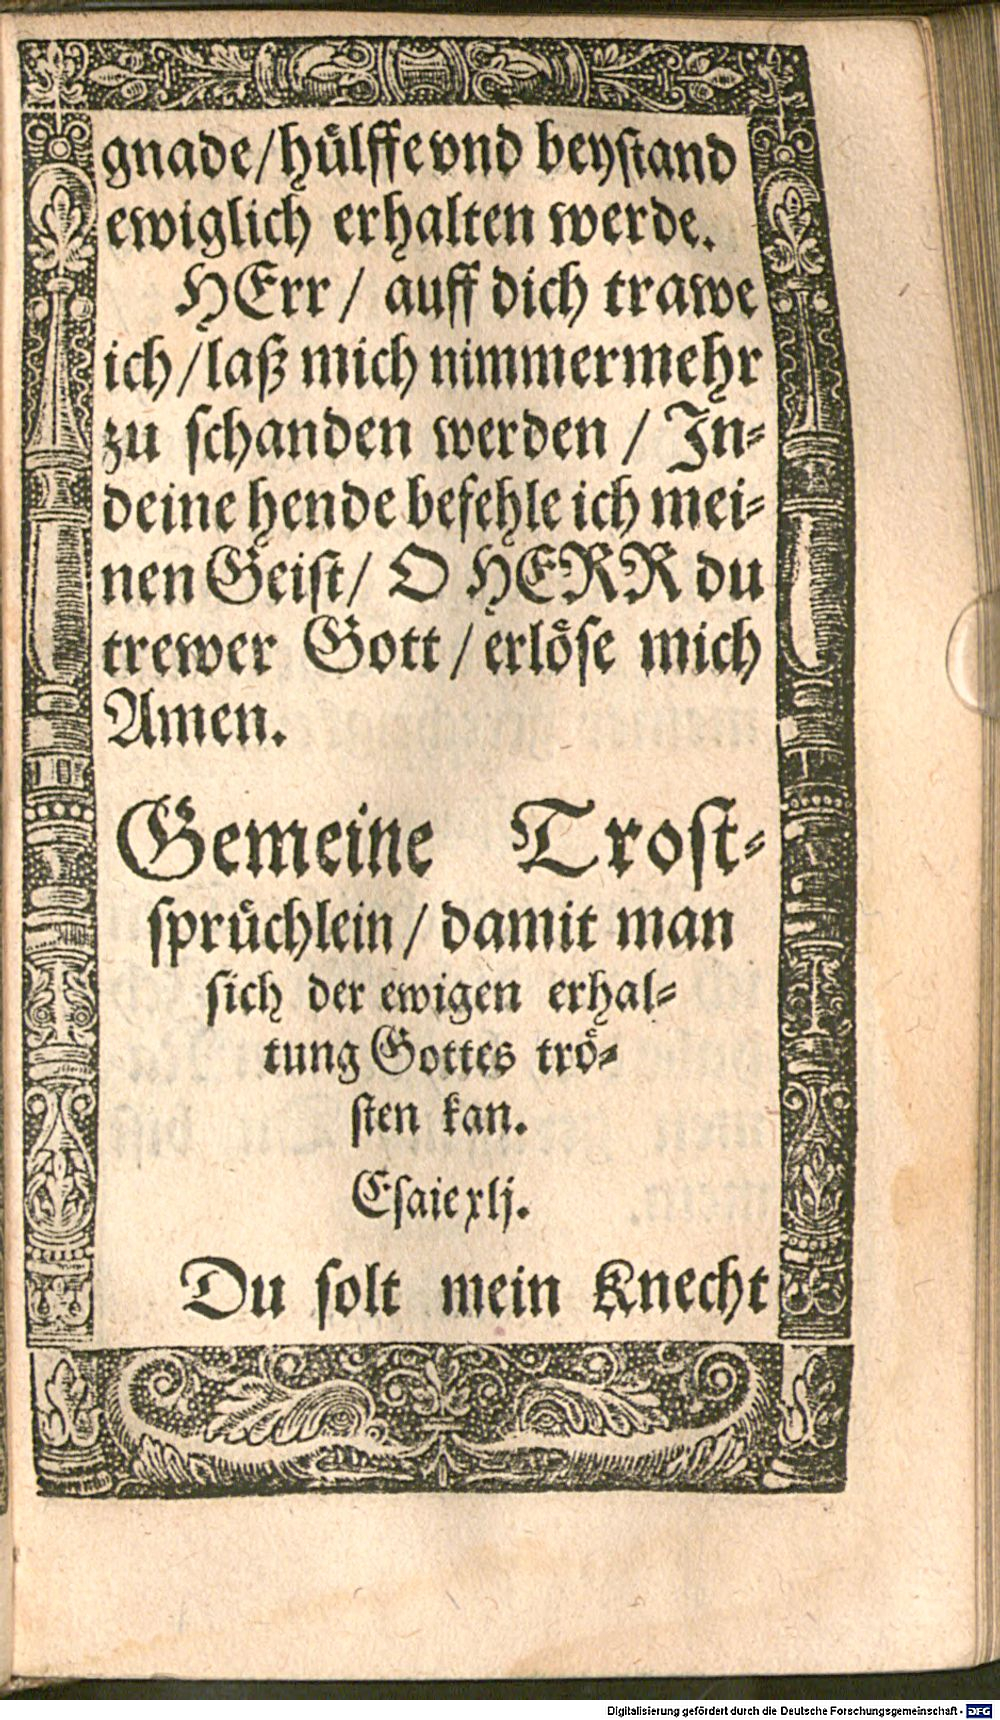 gnade/hůlffe vnd beyſtand
ewiglich erhalten werde.
HErr / auff dich trawe
ich / laß mich nimmermehr
zu ſchanden werden / In-
deine hende befehle ich mei-
nen Geiſt/ O HERR du
trewer Gott / erlöſe mich
Amen.
Gemeine Troſt-
ſprůchlein / damit man
ſich der ewigen erhal-
tung Gottes trö-
ſten kan.
Eſaie xlj.
Du ſolt mein Knecht
Digitalisierung gefördert durch die Deutsche Forschungsgemeinschaft - DFG